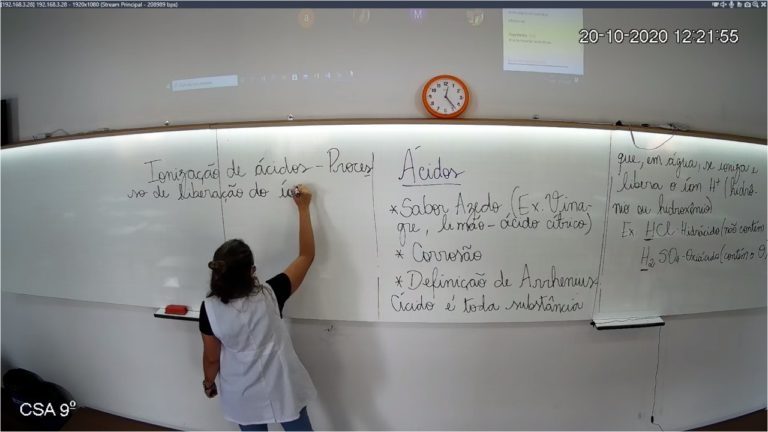 [192.168.3.28] 192.168.3.28 - 1920x1080 (Stream Principal - 208989 bps)
20-10-2020 12:21:55
Ionização de ácidos - Proces
so de liberação do
Ácidos
*Sabor Azedo (Ex. Vina-
gre, limão - ácido cítrico)
* Corrosão
* Definição de Arrhenius
Ácido é toda substância
que, em água, se ioniza e
libera o íon H+ (hidrô-
nio ou hidroxônio)
Ex HCl - Hidrácido (não contém
H2SO4 - Oxiácido (contém o O
CSA 9º